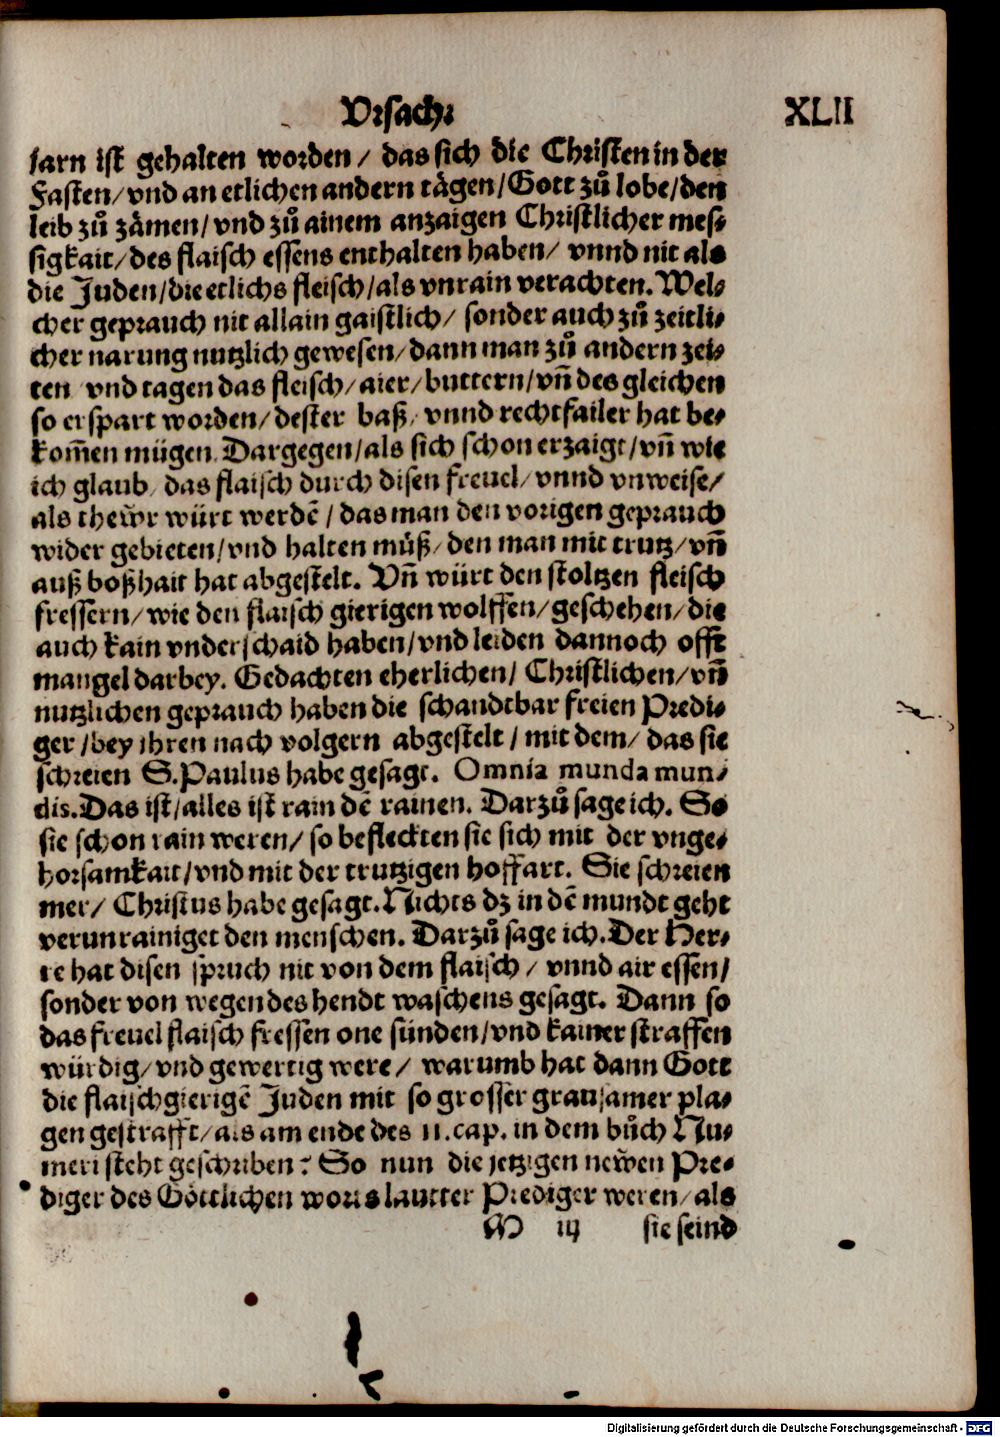 Vrsach. XLII
jarn ist gehalten worden / das sich die Christen in der
Fasten / vnd an etlichen andern tägen / Gott zů lobe / den
leib zů zämen / vnd zů ainem anzaigen Christlicher mes-
sigkait / des flaisch essens enthalten haben / vnnd nit als
die Juden / die etlichs fleisch / als vnrain verachten. Wel-
cher geprauch nit allain gaistlich / sonder auch zů zeitli-
cher narung nutzlich gewesen / dann man zů andern zei-
ten vnd tagen das fleisch / aier / buttern / vñ des gleichen
so erspart worden / dester baß / vnnd rechtfailer hat be-
kom̃en mügen. Dargegen / als sich schon erzaigt / vñ wie
ich glaub / das flaisch durch disen freuel / vnnd vnweise /
als thew̃r würt werdẽ / das man den vorigen geprauch
wider gebieten / vnd halten můß / den man mit trutz / vñ
auß boßhait hat abgestelt. Vñ würt den stoltzen fleisch
fressern / wie den flaisch gierigen wolffen / geschehen / die
auch kain vnderschaid haben / vnd leiden dannoch offt
mangel darbey. Gedachten eherlichen / Christlichen / vñ
nutzlichen geprauch haben die schandtbar freien Predi-
ger / bey ihren nach volgern abgestelt / mit dem / das sie
schreien S. Paulus habe gesagt. Omnia munda mun-
dis. Das ist / alles ist rain dẽ rainen. Darzů sage ich. So
sie schon rain weren / so befleckten sie sich mit der vnge-
horsamkait / vnd mit der trutzigen hoffart. Sie schreien
mer / Christus habe gesagt. Nichts dz in dẽ mundt geht
verunrainiget den menschen. Darzů sage ich. Der Her-
re hat disen spruch nit von dem flaisch / vnnd air essen /
sonder von wegen des hendt waschens gesagt. Dann so
das freuel flaisch fressen one sünden / vnd kainer straffen
würdig / vnd gewertig were / warumb hat dann Gott
die flaischgierigẽ Juden mit so grosser grausamer pla-
gen gestrafft / als am ende des 11. cap. in dem bůch Nu-
meri steht geschriben? So nun die jetzigen new̃en Pre-
diger des Göttlichen worts lautter Prediger weren / als
M iij sie seind
Digitalisierung gefördert durch die Deutsche Forschungsgemeinschaft - DFG